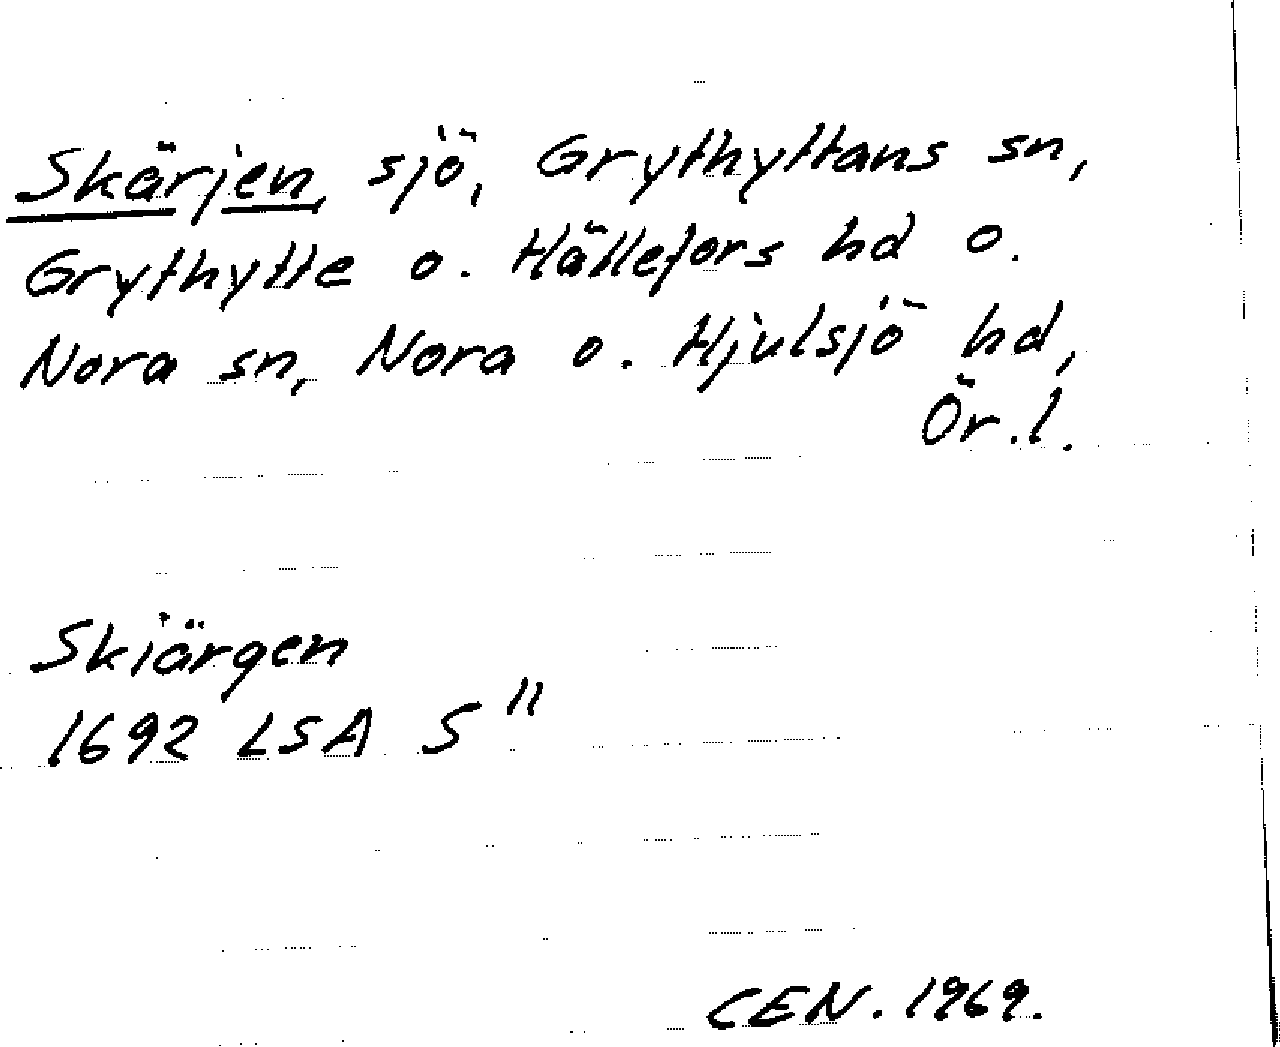 Skärjen, sjö, Grythyttans sn,
Grythytte o. Hällefors hd o.
Nora sn, Nora o. Hjulsjö hd,
Ör.l.
Skiärgen
1692 LSA S"
CEN. 1969.